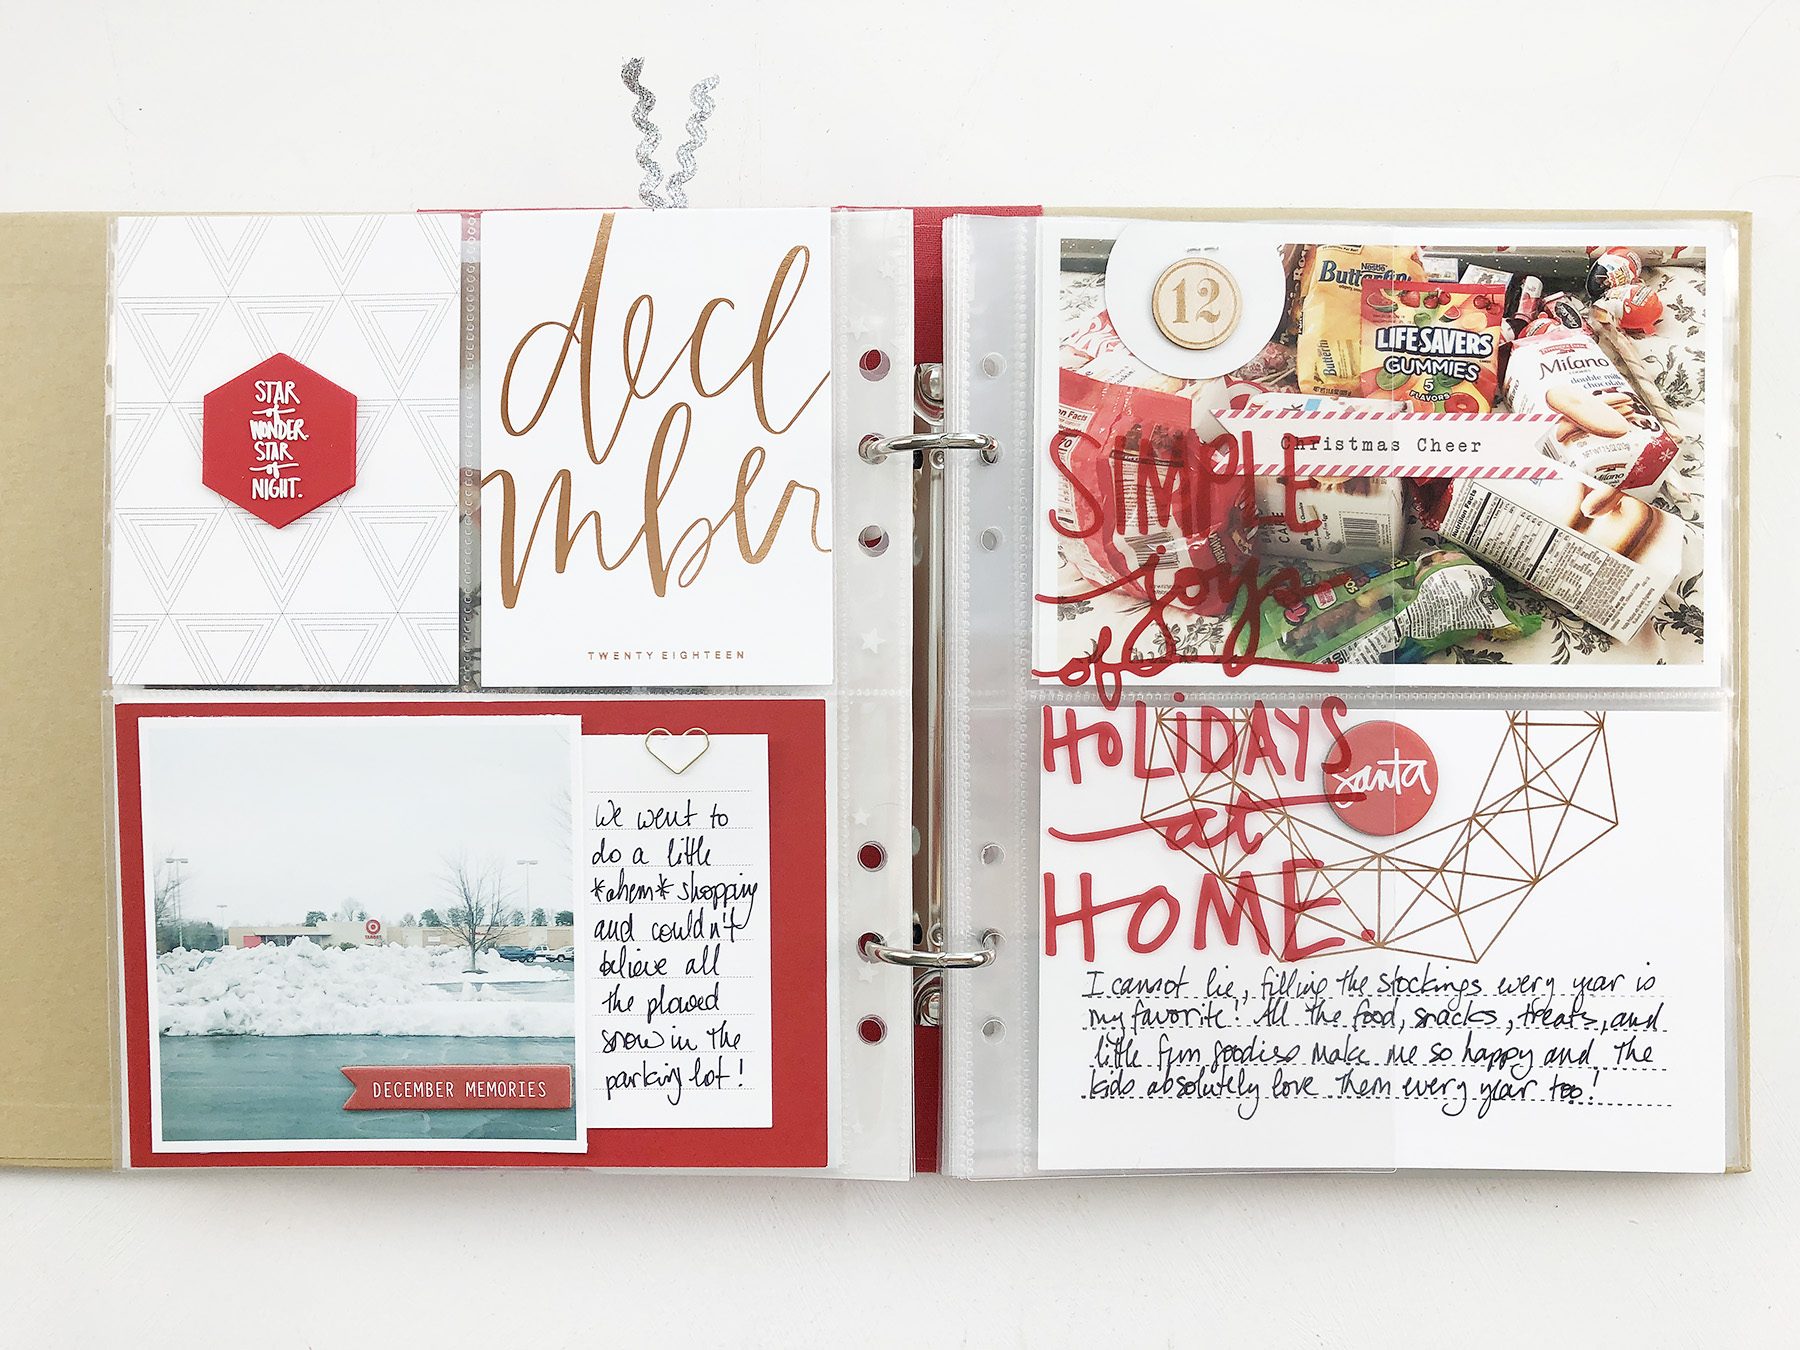 STAR
of
WONDER.
STAR
of
NIGHT.
decl
mber
TWENTY EIGHTEEN
TARGET
DECEMBER MEMORIES
We went to
do a little
*ahem* shopping
and couldn't
believe all
the plowed
snow in the
parking lot!
12
Nestle
LIFE SAVERS
GUMMIES
5
FLAVORS
Milano
double milk
chocolate
Christmas Cheer
Nutrition Facts
SIMPLE
joys
of
HOLIDAYS
at
HOME.
santa
I cannot lie, filling the stockings every year is
my favorite! All the food, snacks, treats, and
little fun goodies make me so happy and the
kids absolutely love them every year too!